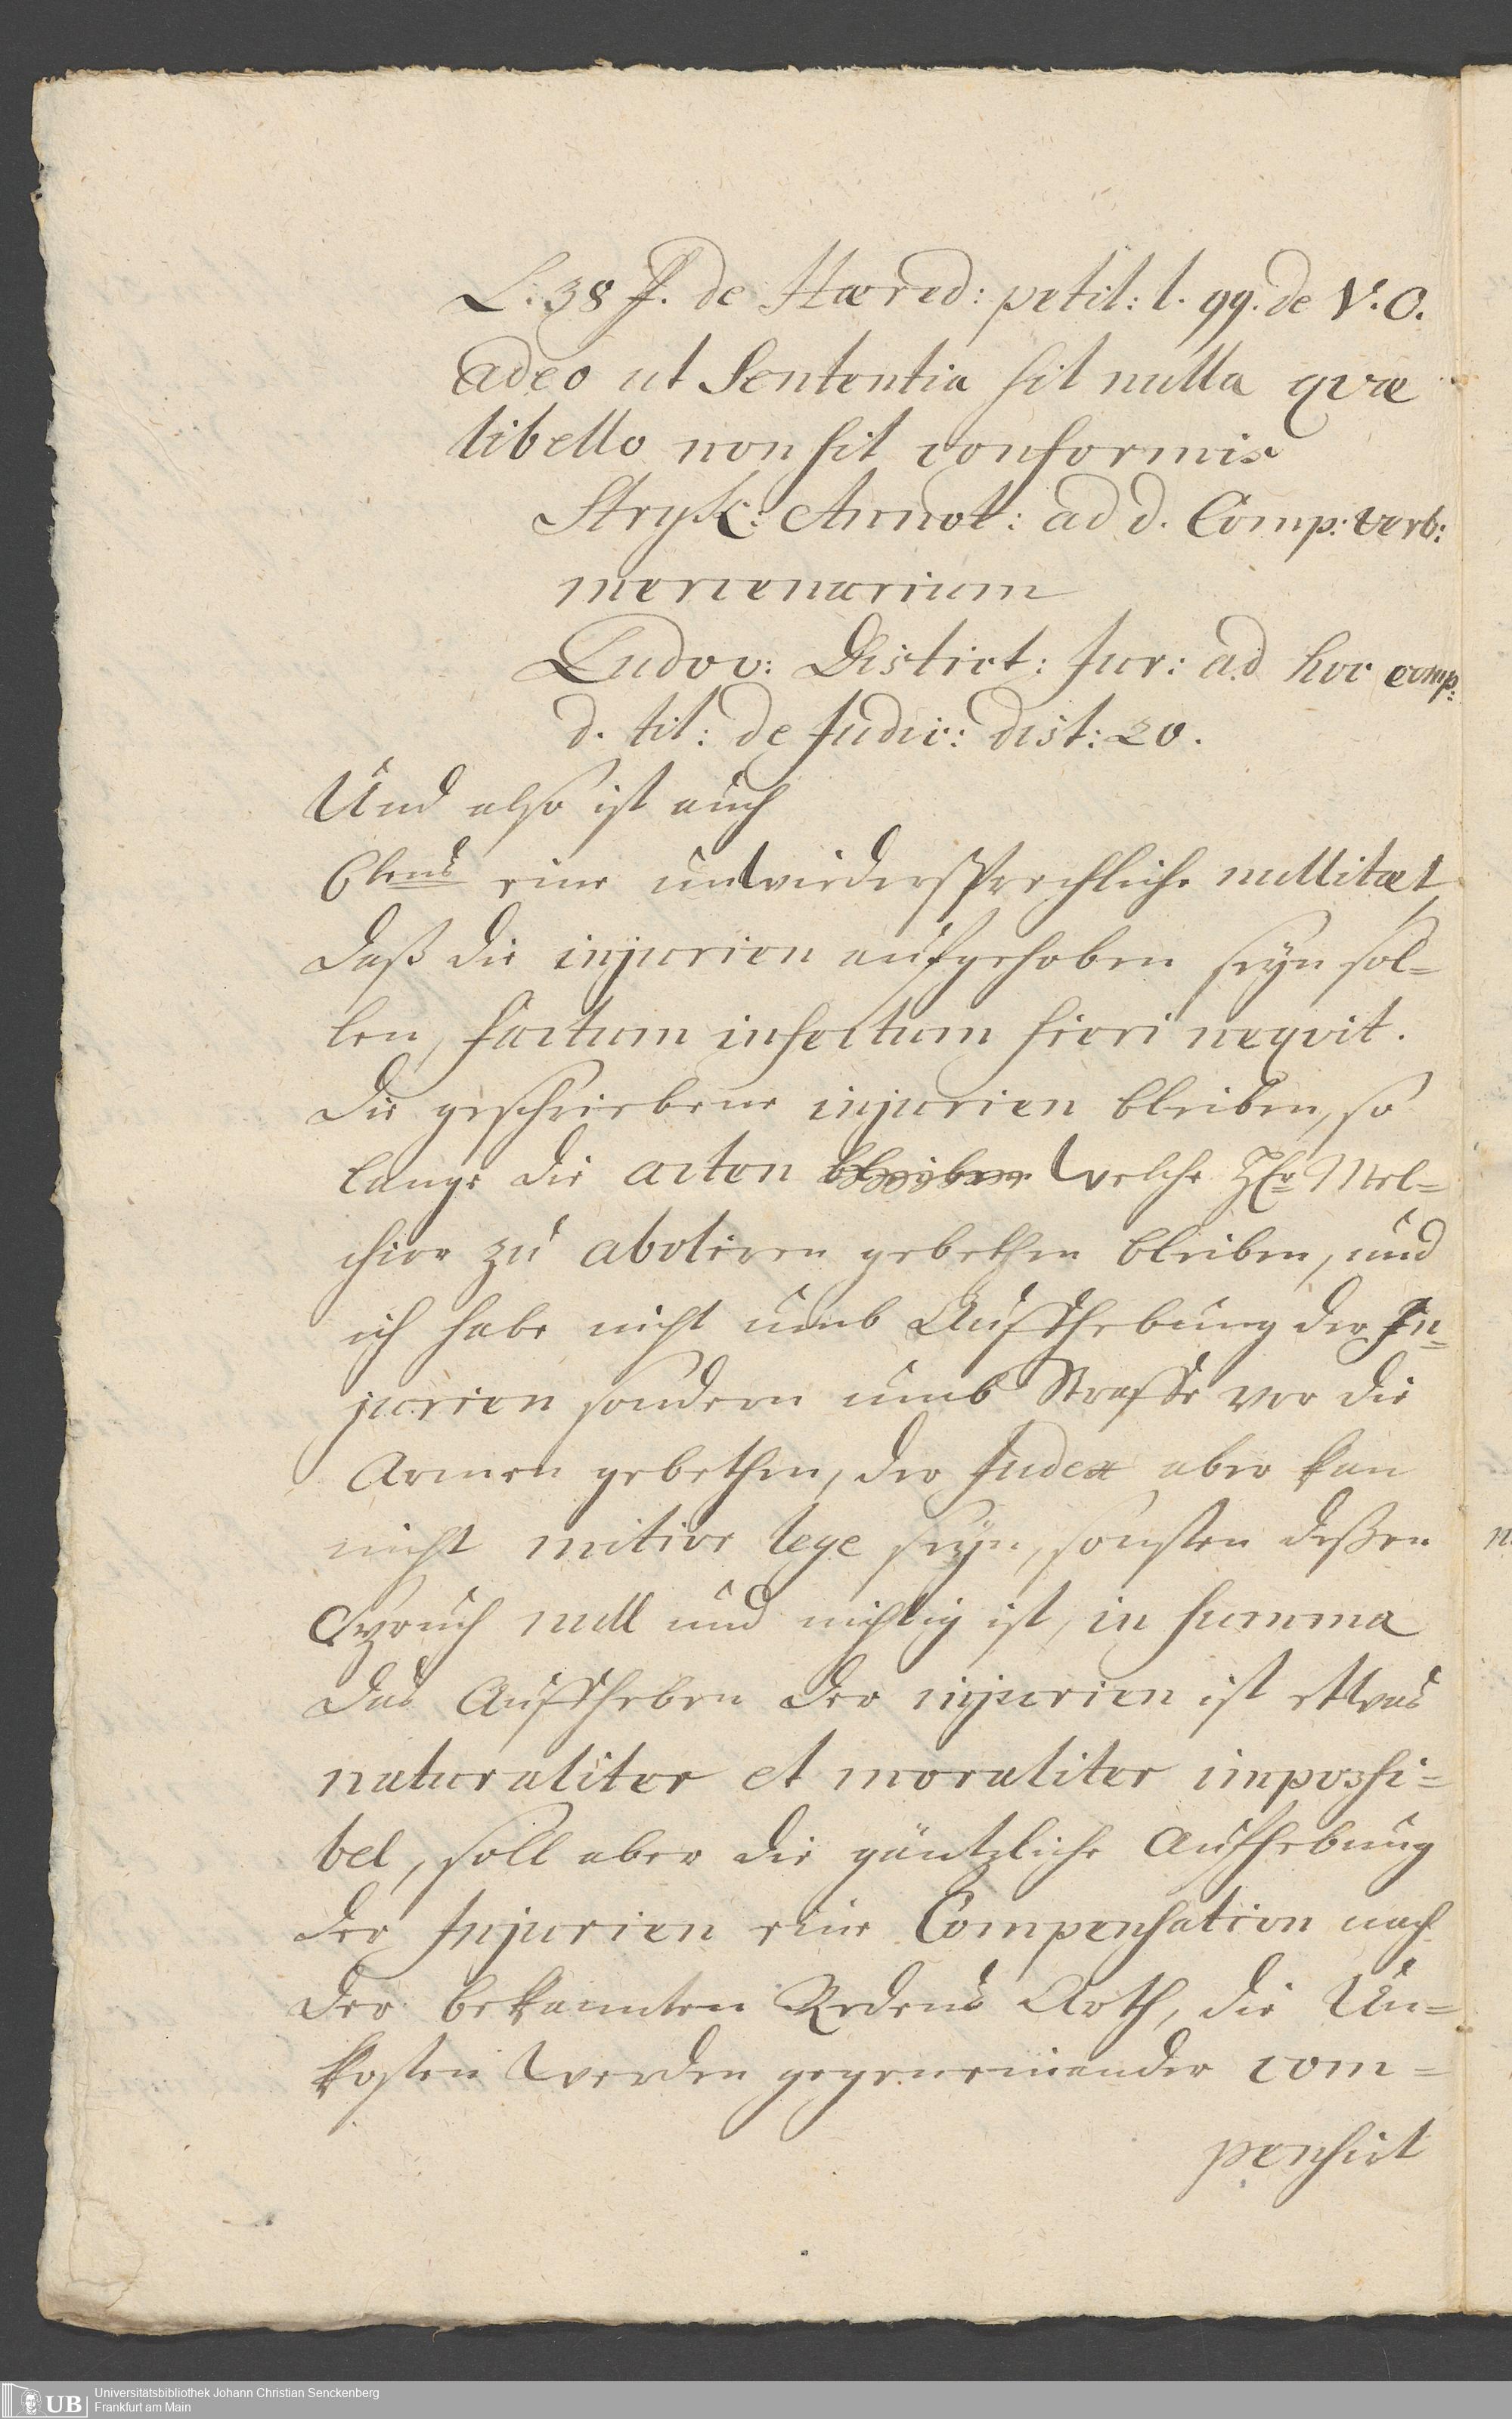 L. 38 ff. de Hæred: petit: l. 99. de V. O.
adeo ut Sententia sit nulla qvæ
libello non sit conformis
Stryk: Annot: ad d. Comp: verb:
mercenarium
Ludov: Distict: Jur: ad hoc comp:
d. tit: de Judic: dist: 20.
Und also ist auch
6tens eine unwiedersprechliche nullitæt,
daß die injurien aufgehoben seyn sol=
len, factum infectum fieri neqvit.
die geschriebene injurien bleiben, so
lange die acten bleiben welche H Mel=
chior zu aboliren gebethen bleiben, und
ich habe nicht umb Auffhebung der In=
jurien sondern umb Straffe vor die
Armen gebethen, der Judex aber kan
nicht mitior lege seyn, sonsten deßen
Spruch null und nichtig ist, in summa
das Auffheben der injurien ist etwas
naturaliter et moraliter impossi=
bel, soll aber die gäntzliche Aufhebung
der Injurien eine Compensation nach
der bekannten Redens Arth, die Un=
kosten werden gegeneinander com=
pensirt
Universitätsbibliothek Johann Christian Senckenberg
Frankfurt am Main